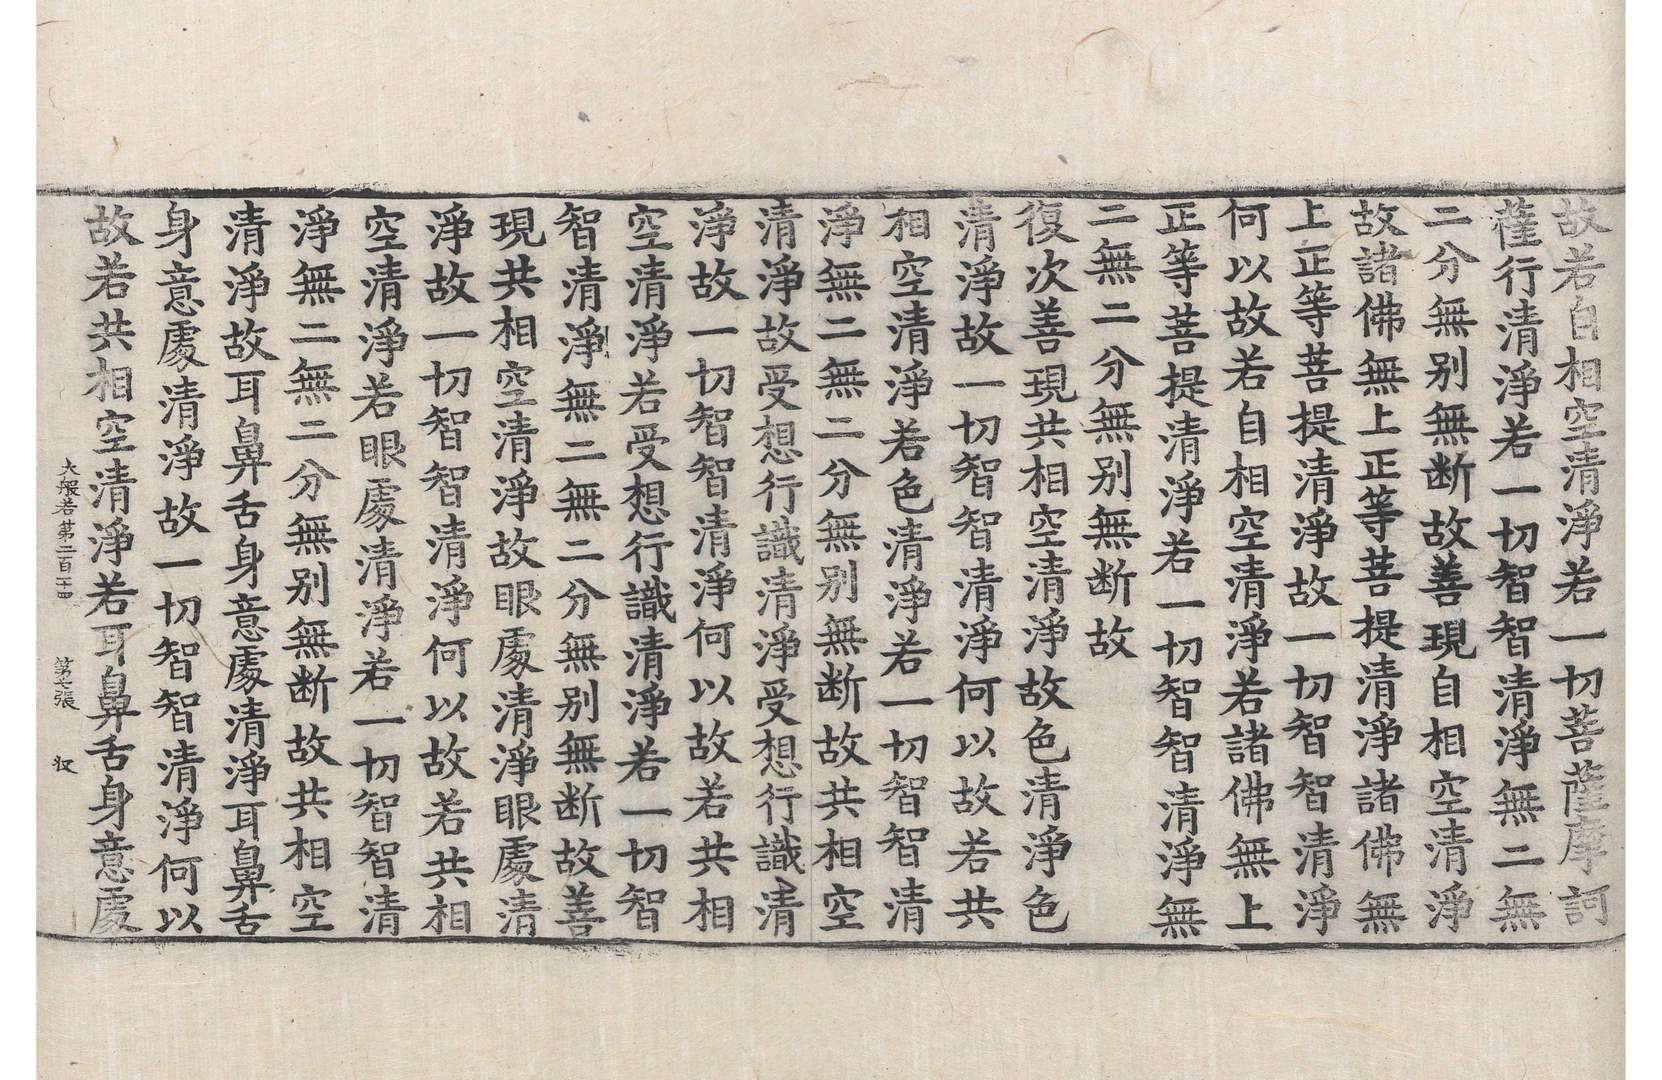 故若自相空清淨若一切菩薩摩訶
薩行清淨若一切智智清淨無二無
二分無別無断故善現自相空清淨
故諸佛無上正等菩提清淨諸佛無
上正等菩提清淨故一切智智清淨
何以故若自相空清淨若諸佛無上
正等菩提清淨若一切智智清淨無
二無二分無別無断故
復次善現共相空清淨故色清淨色
清淨故一切智智清淨何以故若共
相空清淨若色清淨若一切智智清
淨無二無二分無別無断故共相空
清淨故受想行識清淨受想行識清
淨故一切智智清淨何以故若共相
空清淨若受想行識清淨若一切智
智清淨無二無二分無別無断故善
現共相空清淨故眼處清淨眼處清
淨故一切智智清淨何以故若共相
空清淨若眼處清淨若一切智智清
淨無二無二分無別無断故共相空
清淨故耳鼻舌身意處清淨耳鼻舌
身意處清淨故一切智智清淨何以
故若共相空清淨若耳鼻舌身意處
大般若第二百二十四 第七張